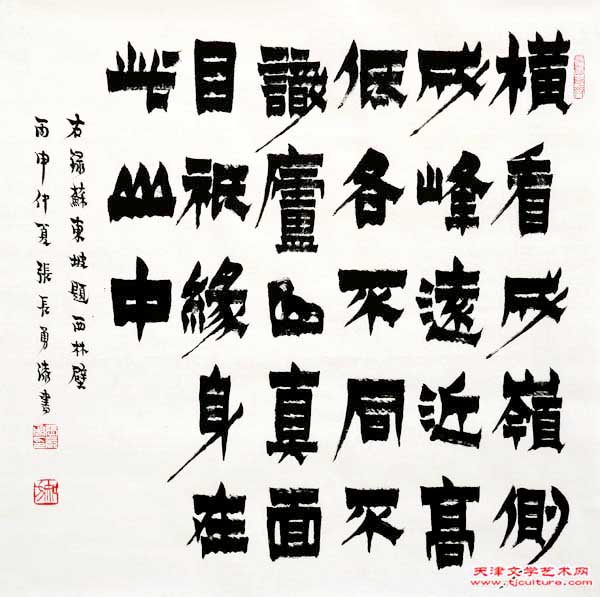 橫看成嶺側
成峰遠近高
低各不同不
識廬山真面
目祇緣身在
此山中
右录蘇東坡題西林壁
丙申仲夏張長勇漆書
天津文学艺术网
www.tjculture.com